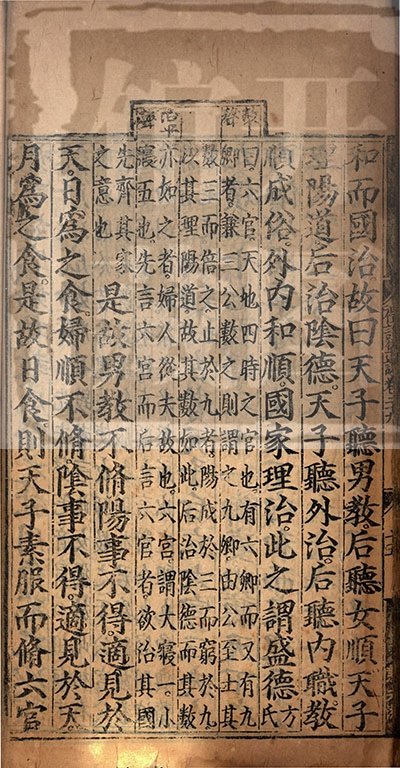 和而國治故曰天子聽男教。后聽女順天子
理陽道。后治陰德。天子聽外治。后聽内職教
順成俗。外内和順。國家理治。此之謂盛德方氏
曰六官天地四時之官也。有六卿而又有九
卿者兼三公數之則謂之九卿由公至士其
數三而倍之。止於九者陽成於三而窮於九
以其理陽道。故其數如此。后治陰德而其數
亦如之者婦人從夫故也。六宮謂大寢一。小
寢五也。先言六宮而后言六官者欲治其國
先齊其家
之意也
是故男教不脩陽事不得。適見於
天。日爲之食。婦順不脩陰事不得。適見於天。
月爲之食。是故日食。則天子素服而脩六官